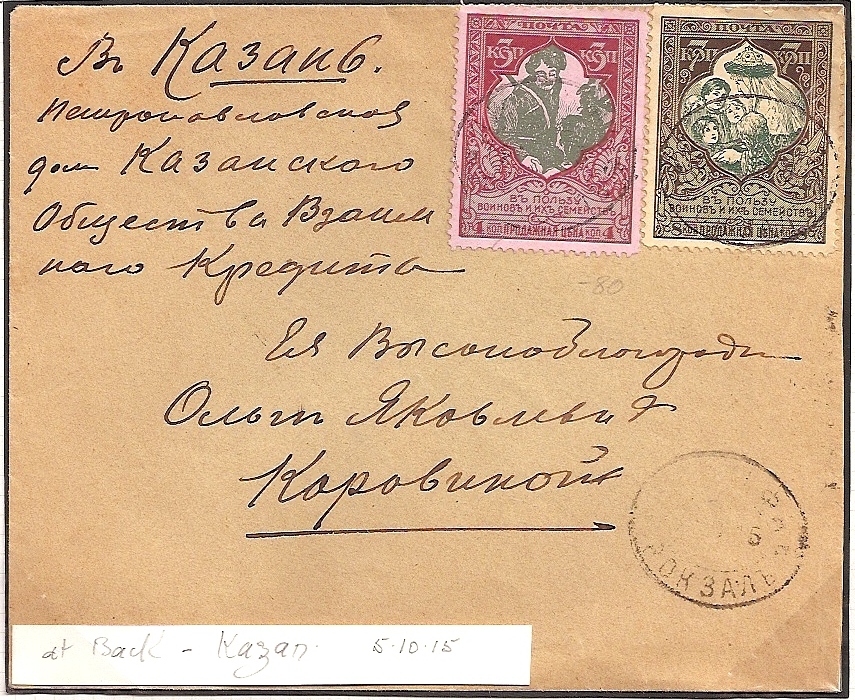 Въ Казань.
Петропавловская
домъ Казанскаго
Общества Взаим
наго Кредита
Ея Высокоблагороди
Ольгѣ Яковлевнѣ
Коровиной
ПОЧТА
3 КОП КОП 3
ВЪ ПОЛЬЗУ
ВОИНОВЪ И ИХЪ СЕМЕЙСТВЪ
4 КОП ПРОДАЖНАЯ ЦѢНА КОП 4
ПОЧТА
3 КОП КОП 3
ВЪ ПОЛЬЗУ
ВОИНОВЪ И ИХЪ СЕМЕЙСТВЪ
ПРОДАЖНАЯ ЦѢНА
-80
ВОКЗАЛЪ
at Back - Казан. 5.10.15